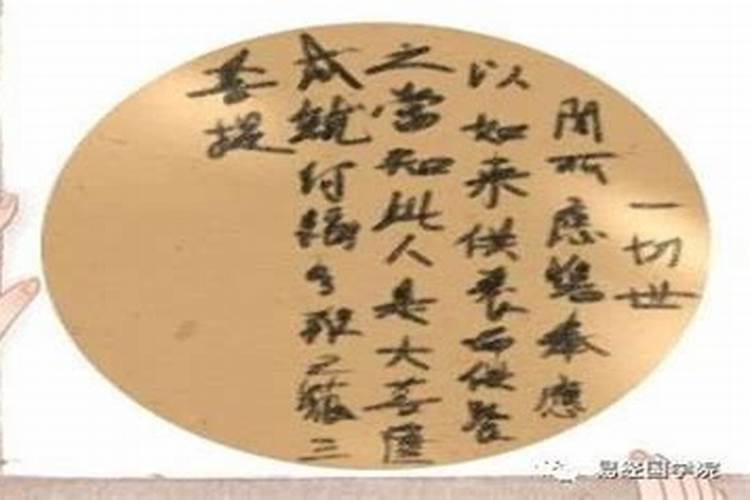 一切世
間所應瞻奉應
以如来供養而供養
之當知此人是大菩薩
成就阿耨多羅三藐三
菩提
易经国学院